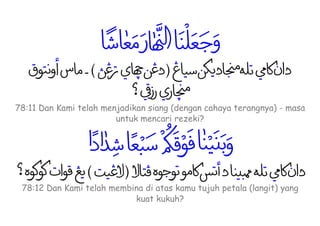 وَجَعَلْنَا النَّهَارَ مَعَاشًا
دان كامي تله منجاديكن سياڠ (دڠن چهاي ترڠڽ) - ماس اونتوق
منچاري رزقي؟
78:11 Dan Kami telah menjadikan siang (dengan cahaya terangnya) - masa
untuk mencari rezeki?
وَبَنَيْنَا فَوْقَكُمْ سَبْعًا شِدَادًا
دان كامي تله ممبينا د أتس كامو توجوه ڤتالا (لاڠيت) يڠ قوات كوكوه؟
78:12 Dan Kami telah membina di atas kamu tujuh petala (langit) yang
kuat kukuh?